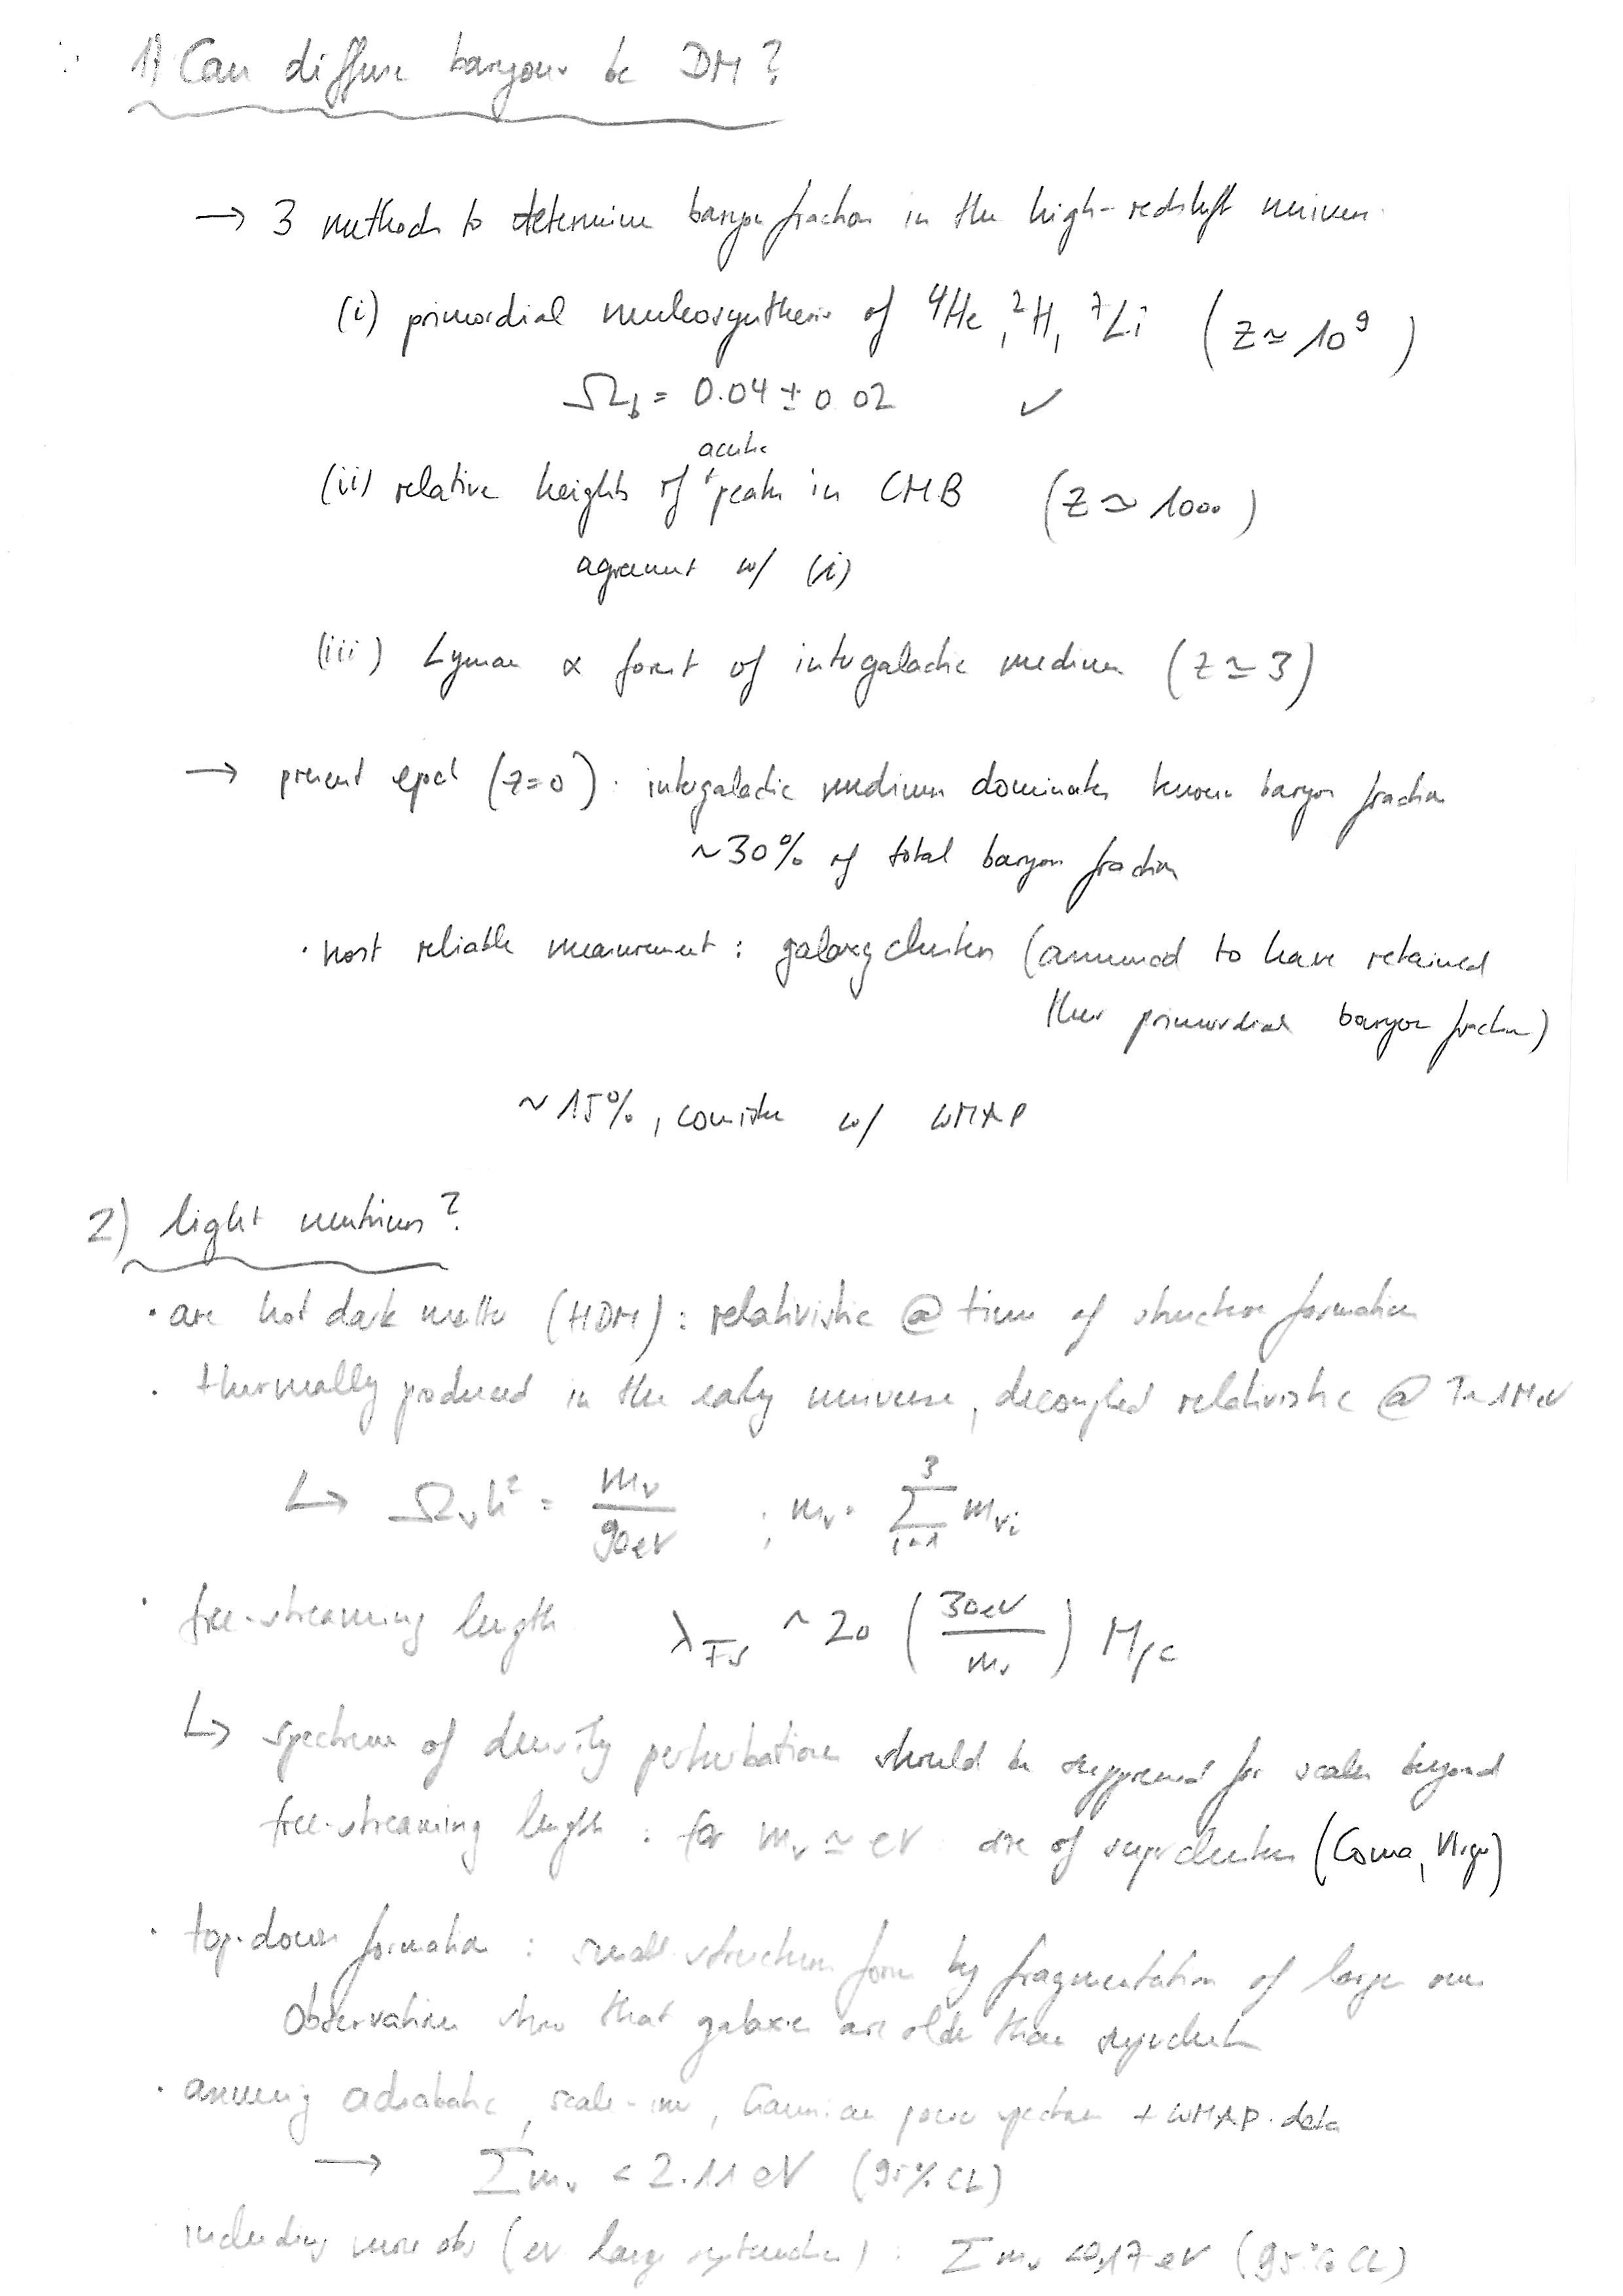 1) Can diffuse baryons be DM?
→ 3 methods to determine baryon fraction in the high-redshift univers
(i) primordial nucleosynthesis of ⁴He, ²H, ⁷Li (z ≃ 10⁹)
Ω_b = 0.04 ± 0.02 ✓
acustic
(ii) relative heights of peaks in CMB (z ≃ 1000)
agreement w/ (i)
(iii) Lyman α forest of intergalactic medium (z ≃ 3)
→ present epoch (z=0): intergalactic medium dominates known baryon fraction
~30% of total baryon fraction
· most reliable measurement: galaxy clusters (assumed to have retained
their primordial baryon fraction)
~15%, consistent w/ WMAP
2) light neutrinos?
· are hot dark matter (HDM): relativistic @ time of structure formation
· thermally produced in the early universe, decoupled relativistic @ T~1MeV
↳ Ω_ν h² = m_ν / 90eV ; m_ν = Σ_{i=1}^{3} m_νi
· free-streaming length λ_FS ~ 20 (30eV / m_ν) Mpc
↳ spectrum of density perturbations should be suppressed for scales beyond
free-streaming length: for m_ν ≃ eV size of superclusters (Coma, Virgo)
· top-down formation: small structures form by fragmentation of large ones
Observations show that galaxies are older than superclusters
· assuming adiabatic, scale-inv, Gaussian power spectrum + WMAP data
→ Σm_ν < 2.11 eV (95% CL)
including more obs (w large systematics): Σm_ν <0,17 eV (95% CL)